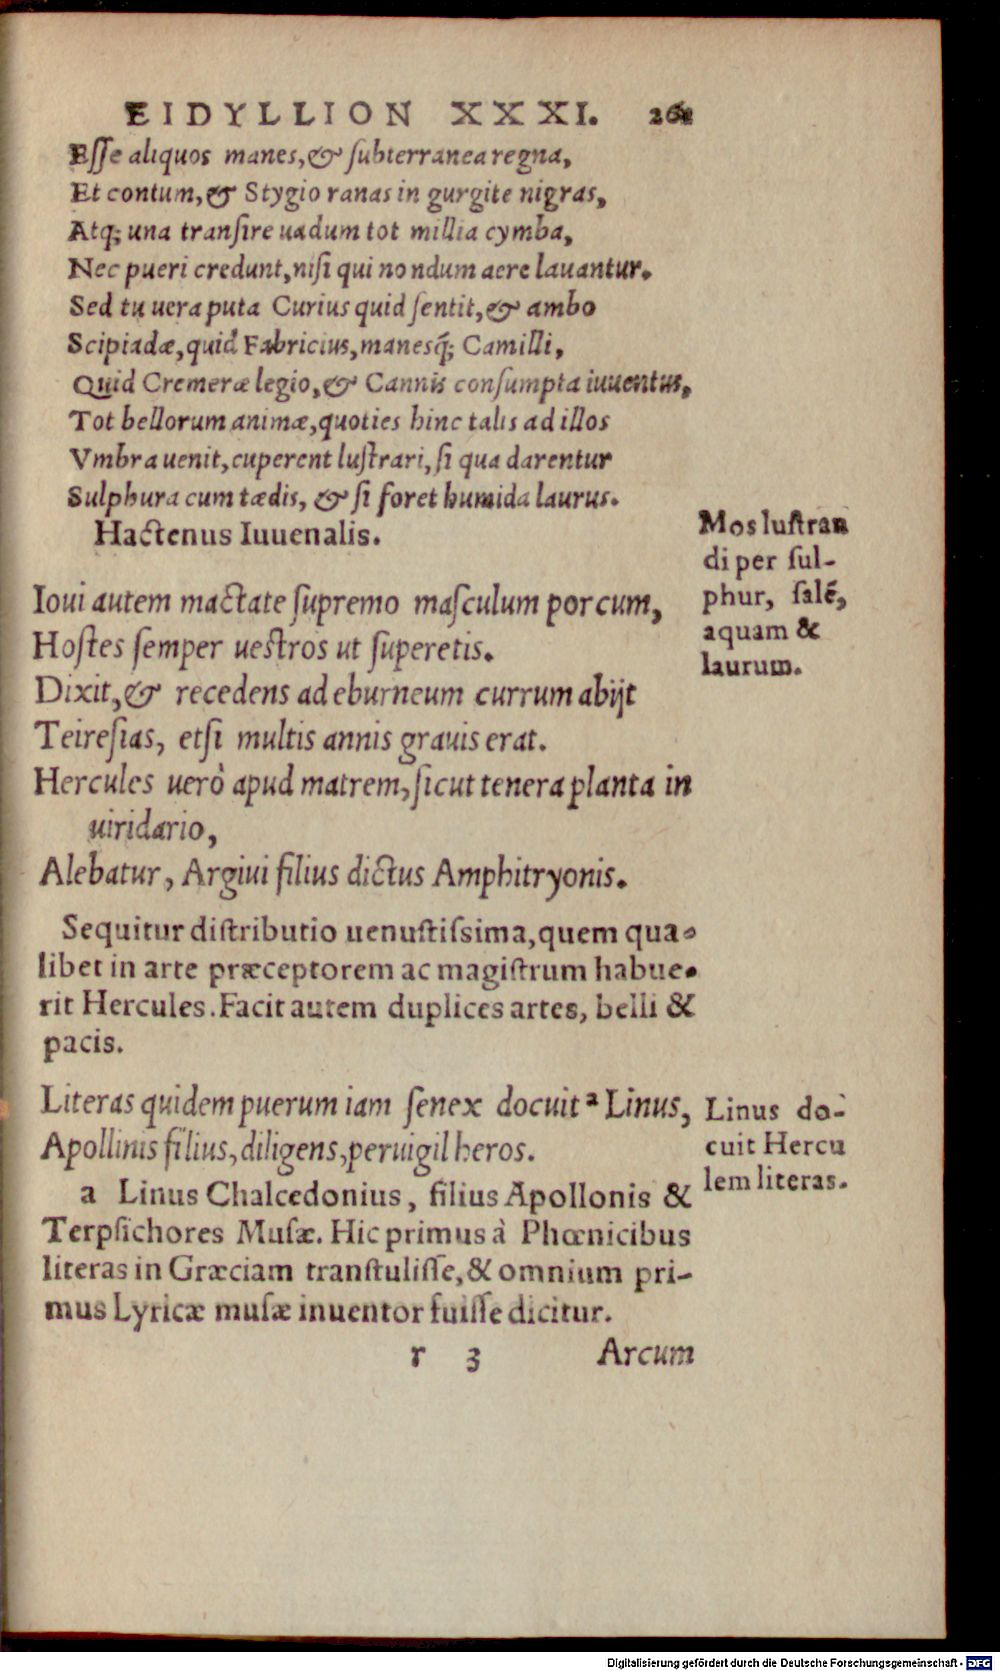 EIDYLLION XXXI.
Esse aliquos manes, & subterranea regna,
Et contum, & Stygio ranas in gurgite nigras,
Atq; una transire uadum tot millia cymba,
Nec pueri credunt, nisi qui nondum aere lauantur.
Sed tu uera puta Curius quid sentit, & ambo
Scipiadæ, quid Fabricius, manesq́; Camilli,
Quid Cremeræ legio, & Cannis consumpta iuuentus,
Tot bellorum animæ, quoties hinc talis ad illos
Vmbra uenit, cuperent lustrari, si qua darentur
Sulphura cum tædis, & si foret humida laurus.
Hactenus Iuuenalis.
Mos lustran
di per sul-
phur, salẽ,
aquam &
laurum.
Ioui autem mactate supremo masculum porcum,
Hostes semper uestros ut superetis.
Dixit, & recedens ad eburneum currum abijt
Teiresias, etsi multis annis grauis erat.
Hercules uerò apud matrem, sicut tenera planta in
uiridario,
Alebatur, Argiui filius dictus Amphitryonis.
Sequitur distributio uenustissima, quem qua-
libet in arte præceptorem ac magistrum habue-
rit Hercules. Facit autem duplices artes, belli &
pacis.
Literas quidem puerum iam senex docuit ª Linus,
Apollinis filius, diligens, peruigil heros.
Linus do-
cuit Hercu
lem literas.
a Linus Chalcedonius, filius Apollonis &
Terpsichores Musæ. Hic primus à Phœnicibus
literas in Græciam transtulisse, & omnium pri-
mus Lyricæ musæ inuentor fuisse dicitur.
r 3 Arcum
Digitalisierung gefördert durch die Deutsche Forschungsgemeinschaft - DFG